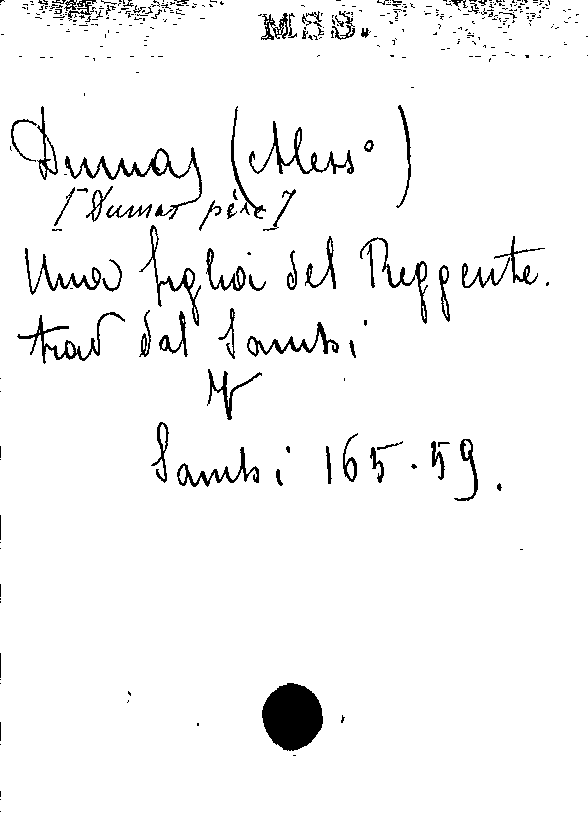 MSS.
Dumas (Aless°)
[Dumas père]
Una figlia del Reggente.
trad dal Sambi
V
Sambi 165.59.